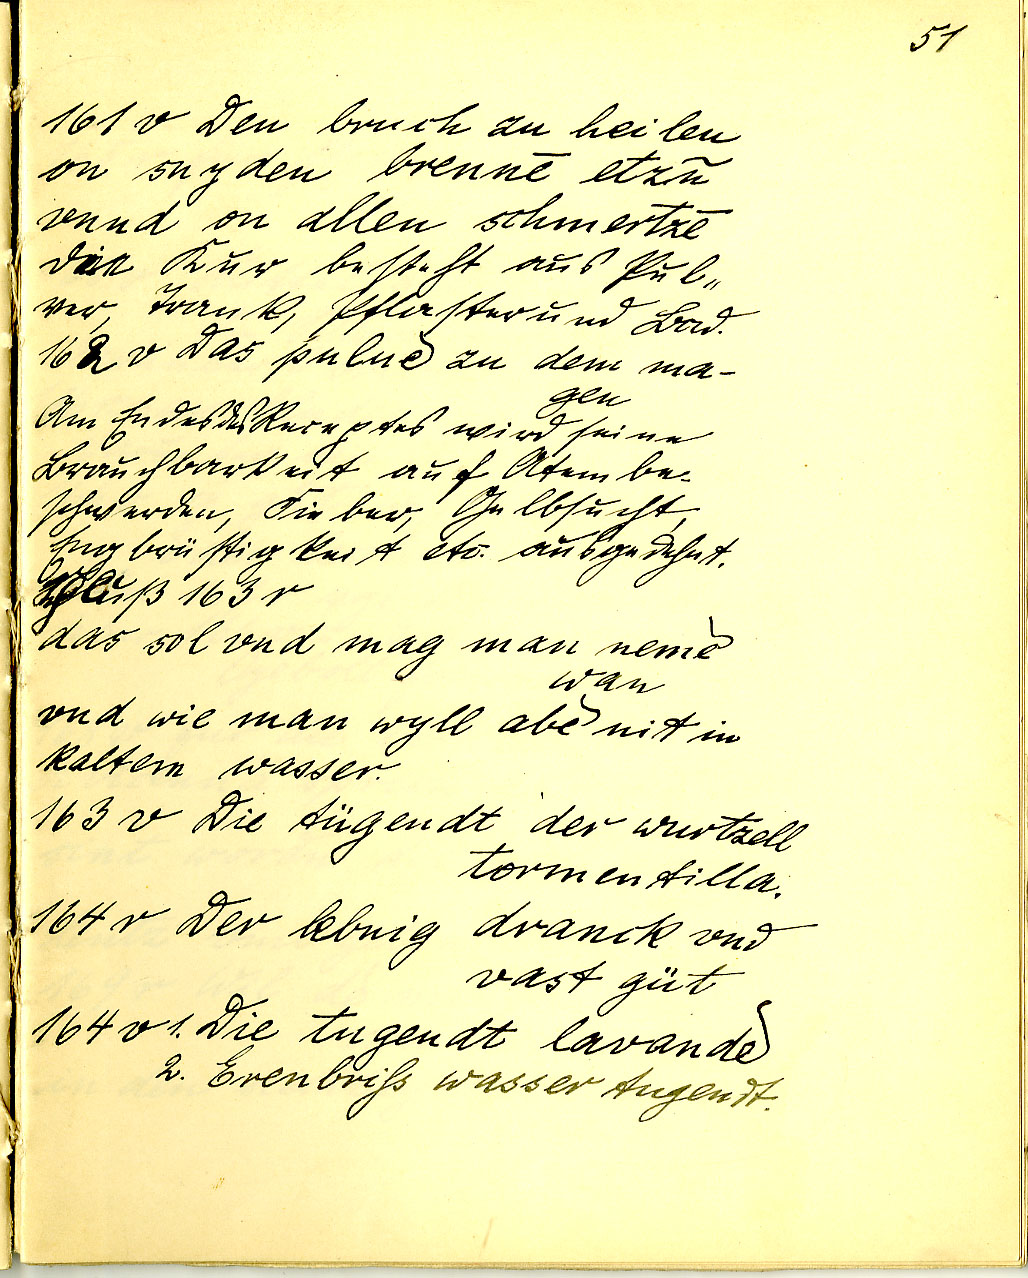 51
161 v Den bruch zu heilen
on snyden brennē etzū
vnnd on allen schmertzē
die Kur besteht aus Pul„
ver, Trank, Pflaster und Bad.
162 v Das puluer zu dem ma-
gen
Am Ende des Receptes wird seine
Brauchbarkeit auf Atembe-
schwerden, Fieber, Gelbsucht,
Engbrüstigkeit etc. ausgedehnt.
Schluß 163 r
das sol vnd mag man nemē
wan
vnd wie man wyll aber nit in
kaltem wasser.
163 v Die tügendt der wurtzell
tormentilla.
164 r Der kbnig dranck vnd
vast güt
164 v 1. Die tugendt lavander
2. Erenbriss wasser tugendt.